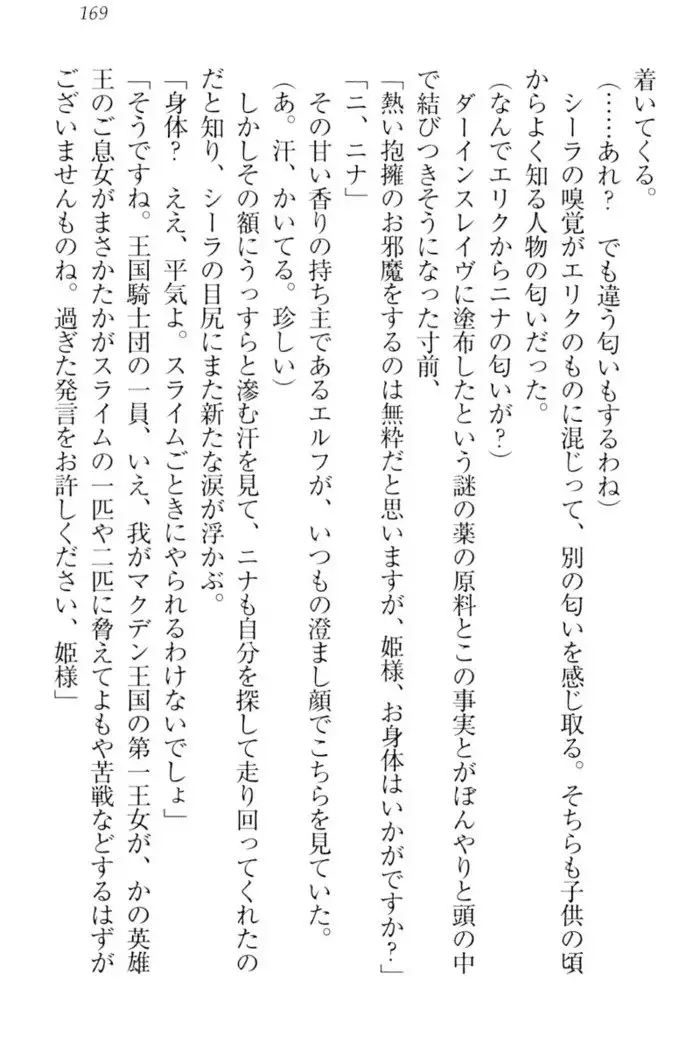 169
着いてくる。
(……あれ? でも違う匂いもするわね)
シーラの嗅覚がエリクのものに混じって、別の匂いを感じ取る。そちらも子供の頃
からよく知る人物の匂いだった。
(なんでエリクからニナの匂いが?)
ダーインスレイヴに塗布したという謎の薬の原料とこの事実とがぼんやりと頭の中
で結びつきそうになった寸前、
「熱い抱擁のお邪魔をするのは無粋だと思いますが、姫様、お身体はいかがですか?」
「ニ、ニナ」
その甘い香りの持ち主であるエルフが、いつもの澄まし顔でこちらを見ていた。
(あ。汗、かいてる。珍しい)
しかしその額にうっすらと滲む汗を見て、ニナも自分を探して走り回ってくれたの
だと知り、シーラの目尻にまた新たな涙が浮かぶ。
「身体? ええ、平気よ。スライムごときにやられるわけないでしょ」
「そうですね。王国騎士団の一員、いえ、我がマクデン王国の第一王女が、かの英雄
王のご息女がまさかたかがスライムの一匹や二匹に脅えてよもや苦戦などするはずが
ございませんものね。過ぎた発言をお許しください、姫様」